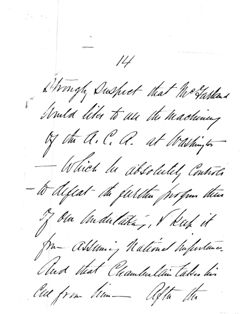 14
strongly suspect that McFarland
would like to use the machinery
of the A. C. A. at Washington
– which he absolutely controls
– to defeat the further progress there
of our undertaking, & keep it
from assuming National importance.
And that Chamberlain takes his
cue from him – After the